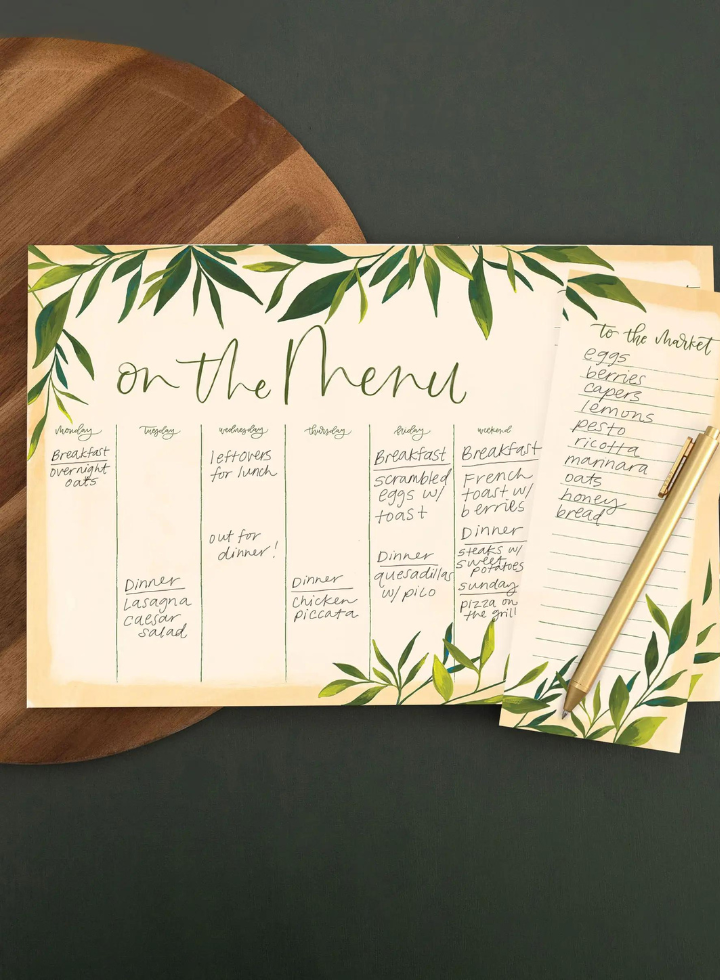 on the Menu
monday
Breakfast
overnight
oats
tuesday
Dinner
Lasagna
caesar
salad
wednesday
leftovers
for lunch
out for
dinner!
thursday
Dinner
chicken
piccata
friday
Breakfast
scrambled
eggs w/
toast
Dinner
quesadillas
w/ pico
weekend
Breakfast
French
toast w/
berries
Dinner
steaks w/
sweet
potatoes
sunday
pizza on
the grill
to the market
eggs
berries
capers
lemons
pesto
ricotta
marinara
oats
honey
bread